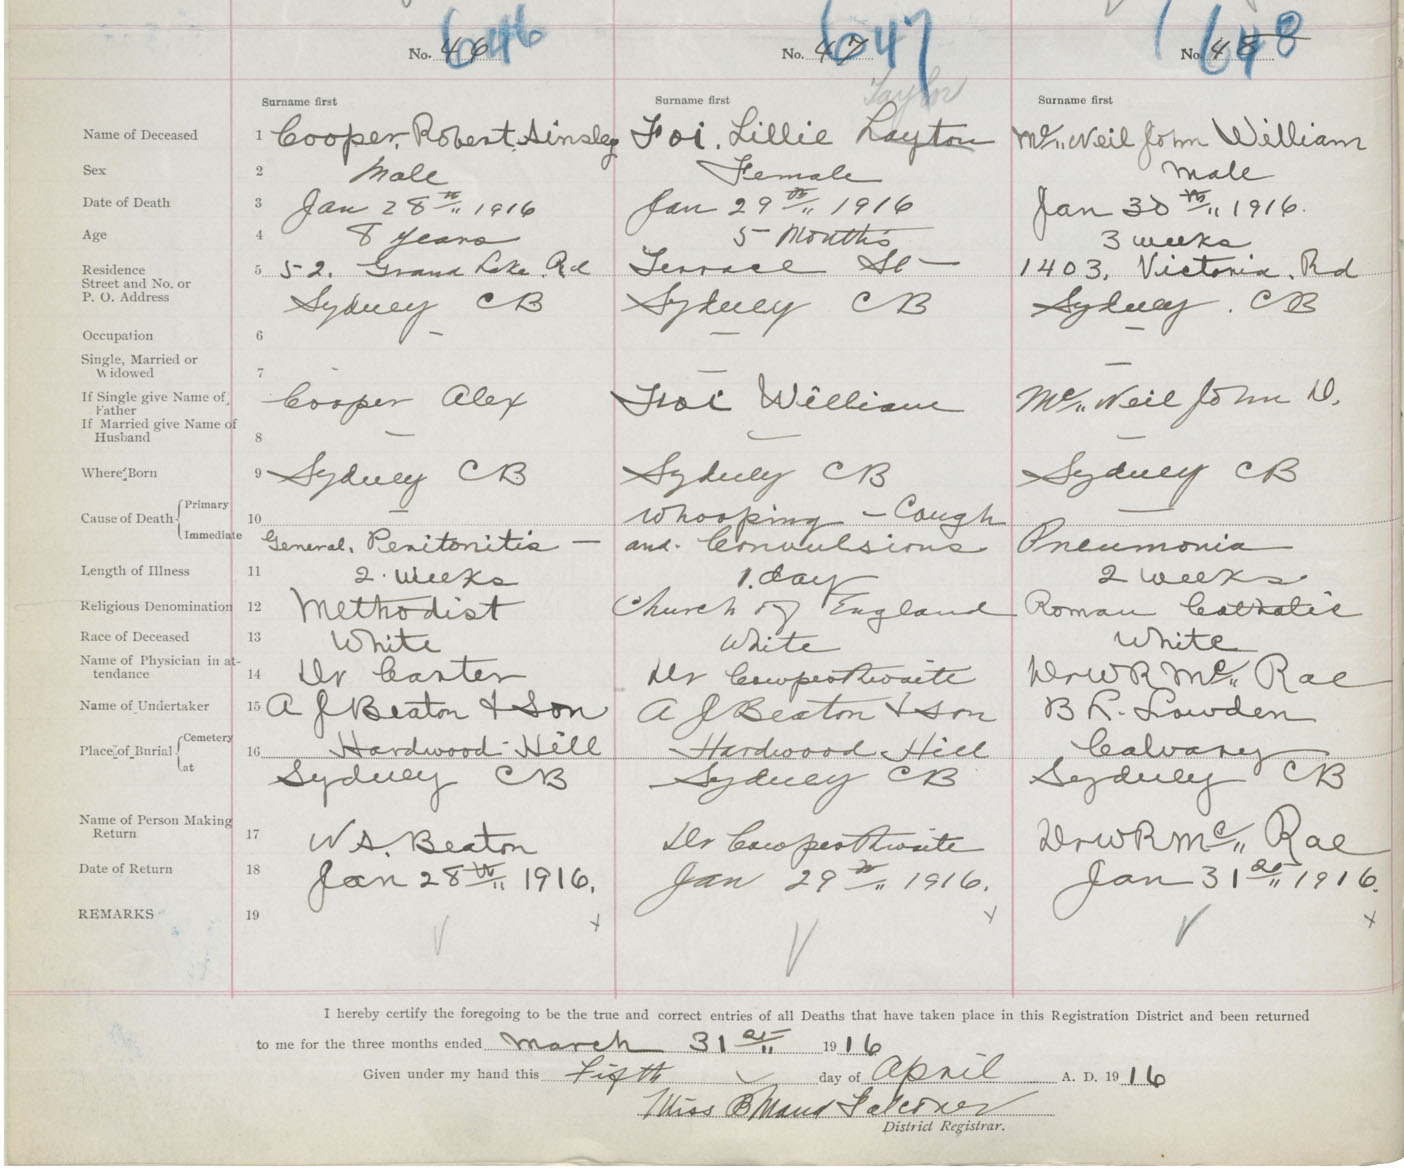 646 647 648
No. 46 No. 47 No. 48
Taylor
Surname first Surname first Surname first
Name of Deceased 1 Cooper, Robert, Ainsley Foi, Lillie Layton Mc,, Neil John William
Sex 2 Male Female Male
Date of Death 3 Jan 28th,, 1916 Jan 29th,, 1916 Jan 30th,, 1916.
Age 4 8 years 5 Months 3 weeks
Residence 5 52. Grand Lake. Rd Terrace St — 1403. Victoria. Rd
Street and No. or
P. O. Address Sydney CB Sydney CB Sydney. CB
Occupation 6 — — —
Single, Married or
Widowed 7 - — —
If Single give Name of Father Cooper Alex Foi William Mc,, Neil John D.
If Married give Name of
Husband 8 — — —
Where Born 9 Sydney CB Sydney CB Sydney CB
Cause of Death Primary 10 — Whooping - Cough —
Immediate General, Peritonitis — and. Convulsions Pneumonia
Length of Illness 11 2. weeks 1. day 2 weeks
Religious Denomination 12 Methodist Church of England Roman Catholic
Race of Deceased 13 White White White
Name of Physician in attendance 14 Dr Carter Dr Cowperthwaite Dr W R Mc,, Rae
Name of Undertaker 15 A J Beaton & Son A J Beaton & Son B L. Lowden
Place of Burial Cemetery 16 Hardwood Hill Hardwood Hill Calvary
at Sydney CB Sydney CB Sydney CB
Name of Person Making
Return 17 W A. Beaton Dr Cowperthwaite Dr W R Mc,, Rae
Date of Return 18 Jan 28th,, 1916. Jan 29th,, 1916. Jan 31st,, 1916.
REMARKS 19 x x x
I hereby certify the foregoing to be the true and correct entries of all Deaths that have taken place in this Registration District and been returned
to me for the three months ended March 31st,, 1916
Given under my hand this Fifth day of April A. D. 1916
Miss B Maud Falconer
District Registrar.